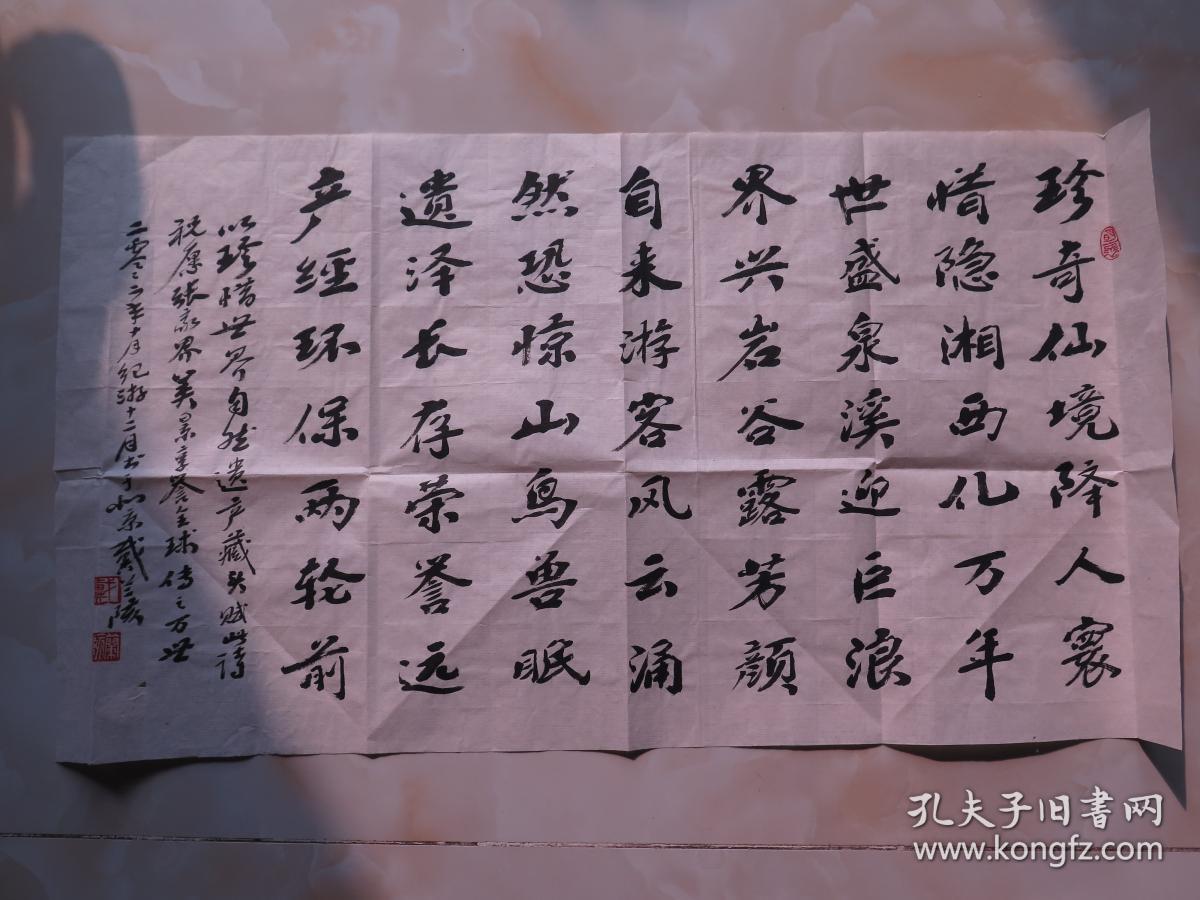 珍奇仙境降人寰
惜隐湘西几万年
世盛泉溪迎巨浪
界兴岩谷露芳颜
自来游客风云涌
然恐惊山鸟兽眠
遗泽长存荣誉远
产经环保两轮前
以珍惜世界自然遗产藏头赋此诗
祝愿张家界美景享誉全球传之万世
二零零二年十月纪游十二月书于北京戴兰陵
孔夫子旧书网
www.kongfz.com